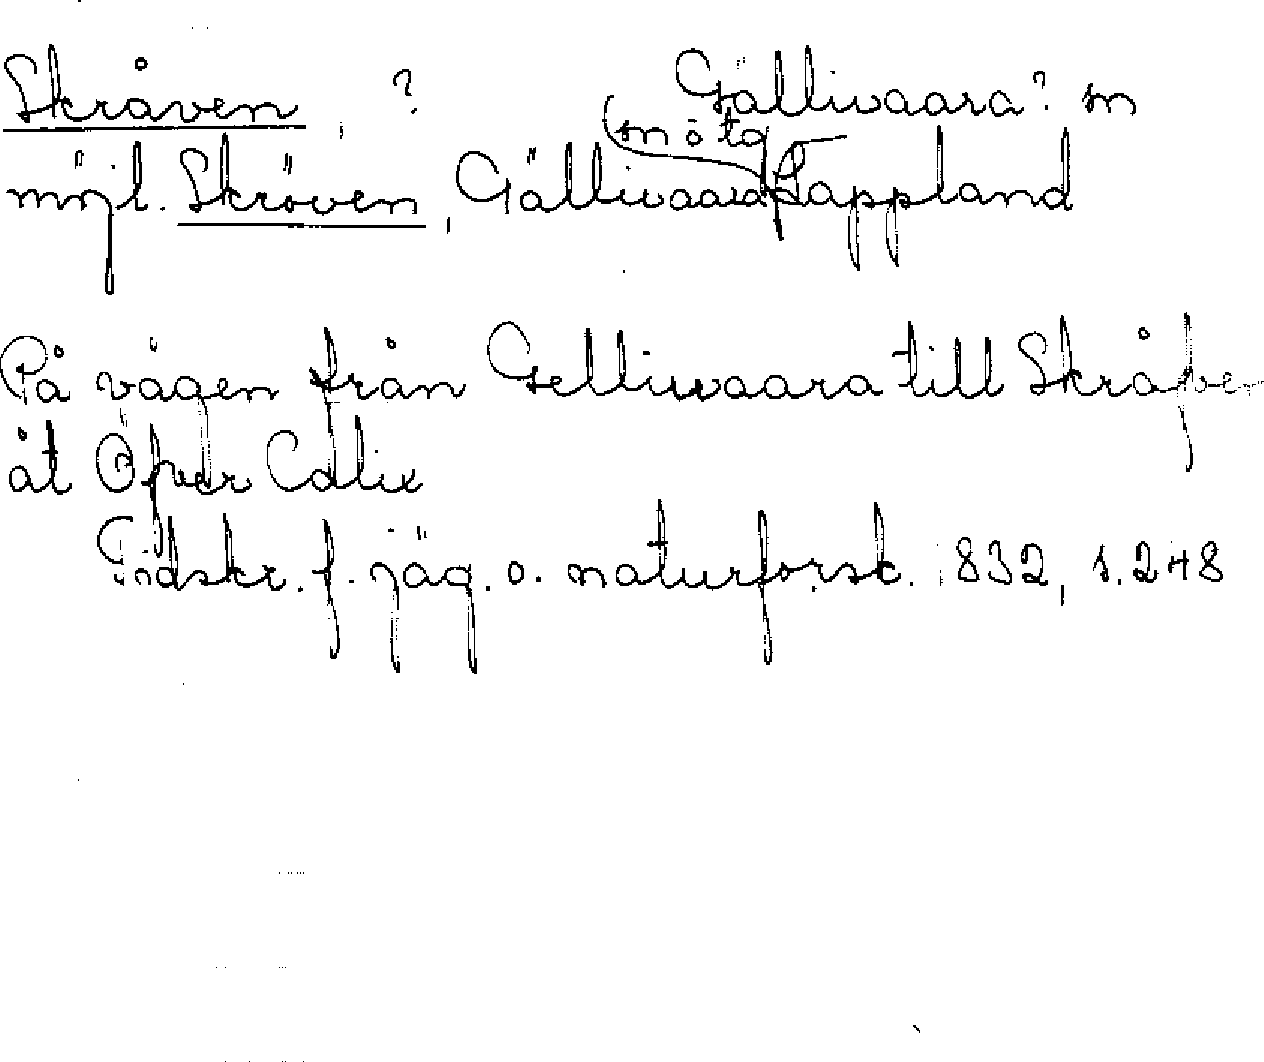 Skråven, ? Gällivaara? sn
möjl. Skröven, Gällivaara (sn o tg) Lappland
På vägen från Gellivaara till Skråfven
åt Öfver Calix
Tidskr. f. jäg. o. naturforsk. 1832, s. 248